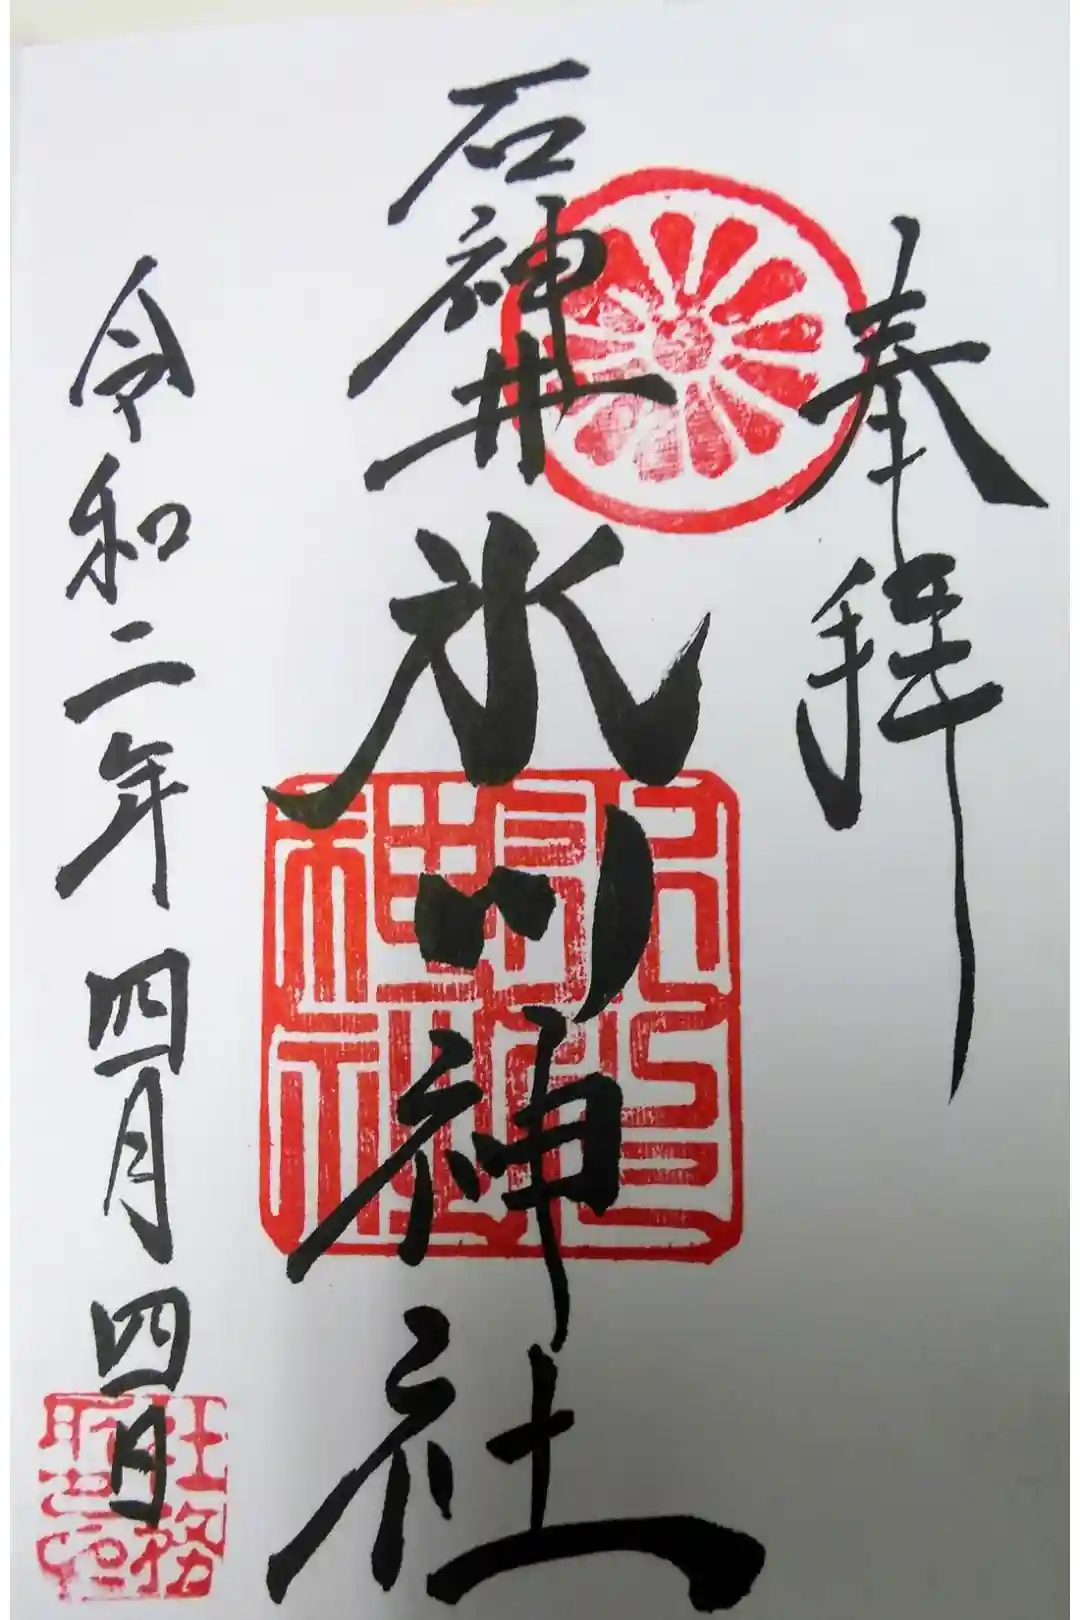 奉拝
石神井氷川神社
令和二年四月四日
社務所之印